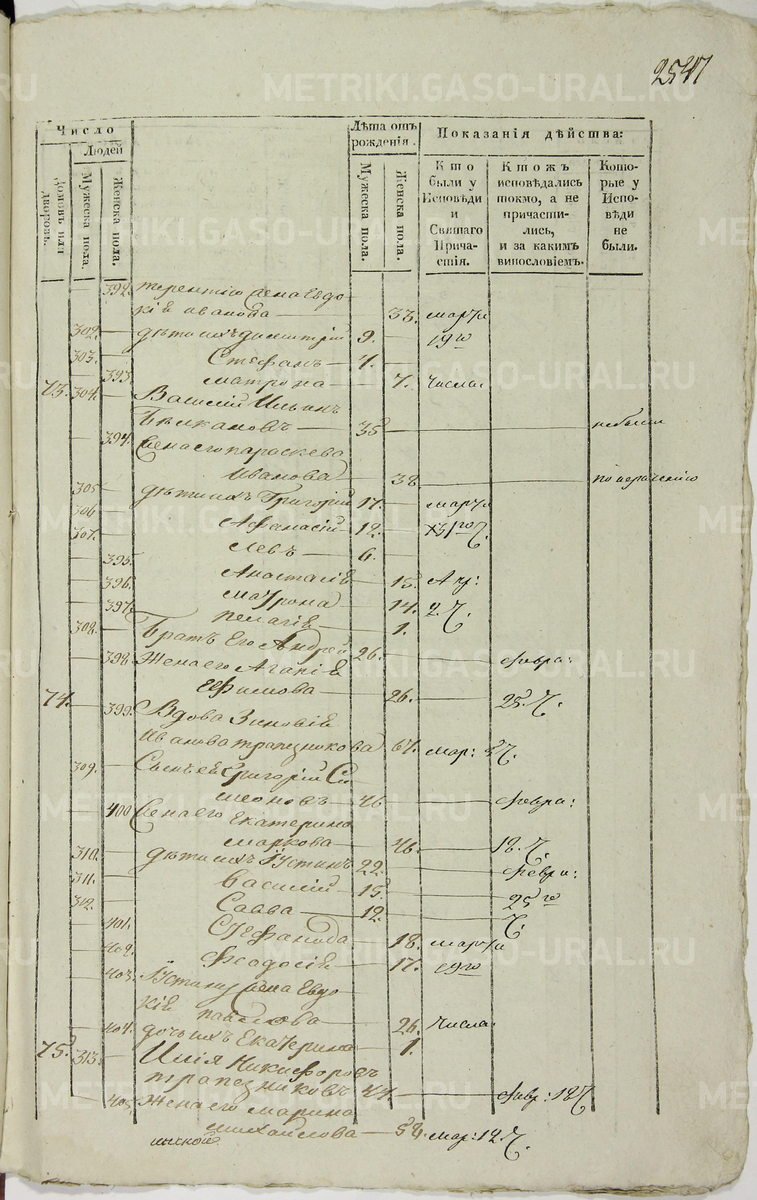 2547
Число
Людей
Домовъ или дворовъ.
Мужеска пола.
Женска пола.
Лѣта отъ рожденія.
Мужеска пола.
Женска пола.
Показанія дѣйства:
Кто были у Исповѣди и Святаго Причастія.
Ктожъ исповѣдались токмо, а не причастились, и за какимъ винословіемъ.
Которые у Исповѣди не были.
392. терентію жена Евдо
кія иванова — 33. марта
302. дѣти ихъ димитрій 9. 19го
303. Стефанъ — 4.
393. матрона 7. числа.
73. 304. Василій Ильинъ
35 не были
394. Жена его параскева
Иванова 38 по нерачению
305 дѣти ихъ Григорій 17. марта
306. Афанасій — 12. 31го Ч.
307. Левъ — 6.
395. Анастасія 15. Апр:
396. матрона 14. 2. Ч.
397. пелагія 1.
308. Братъ Его Андрей 26. февра:
398. Жена его Агапія
Ефимова — 26. 25. Ч.
74. 399. Вдова Зиновія
Иванова трапезникова 67. мар: Ч.
309. Сынъ ея Григорій Си
меоновъ — 46 февра:
400 Жена его Екатерина
маркова 46. 18. Ч.
310. дѣти ихъ Іустинъ 22. февра:
311. Василій — 15. 25го
312. Савва — 12. Ч.
401. Стефанида 18. марта
402. Феодосія 17. 19го
403. Іустину жена Евдо
кія павлова 26. числа.
404. дочь ихъ Екатерина 1.
75. 313. Илія Никифоровъ
трапезниковъ 47. февр: 18 Ч
405. Жена его марина
михайлова — 58. мар: 12. Ч.